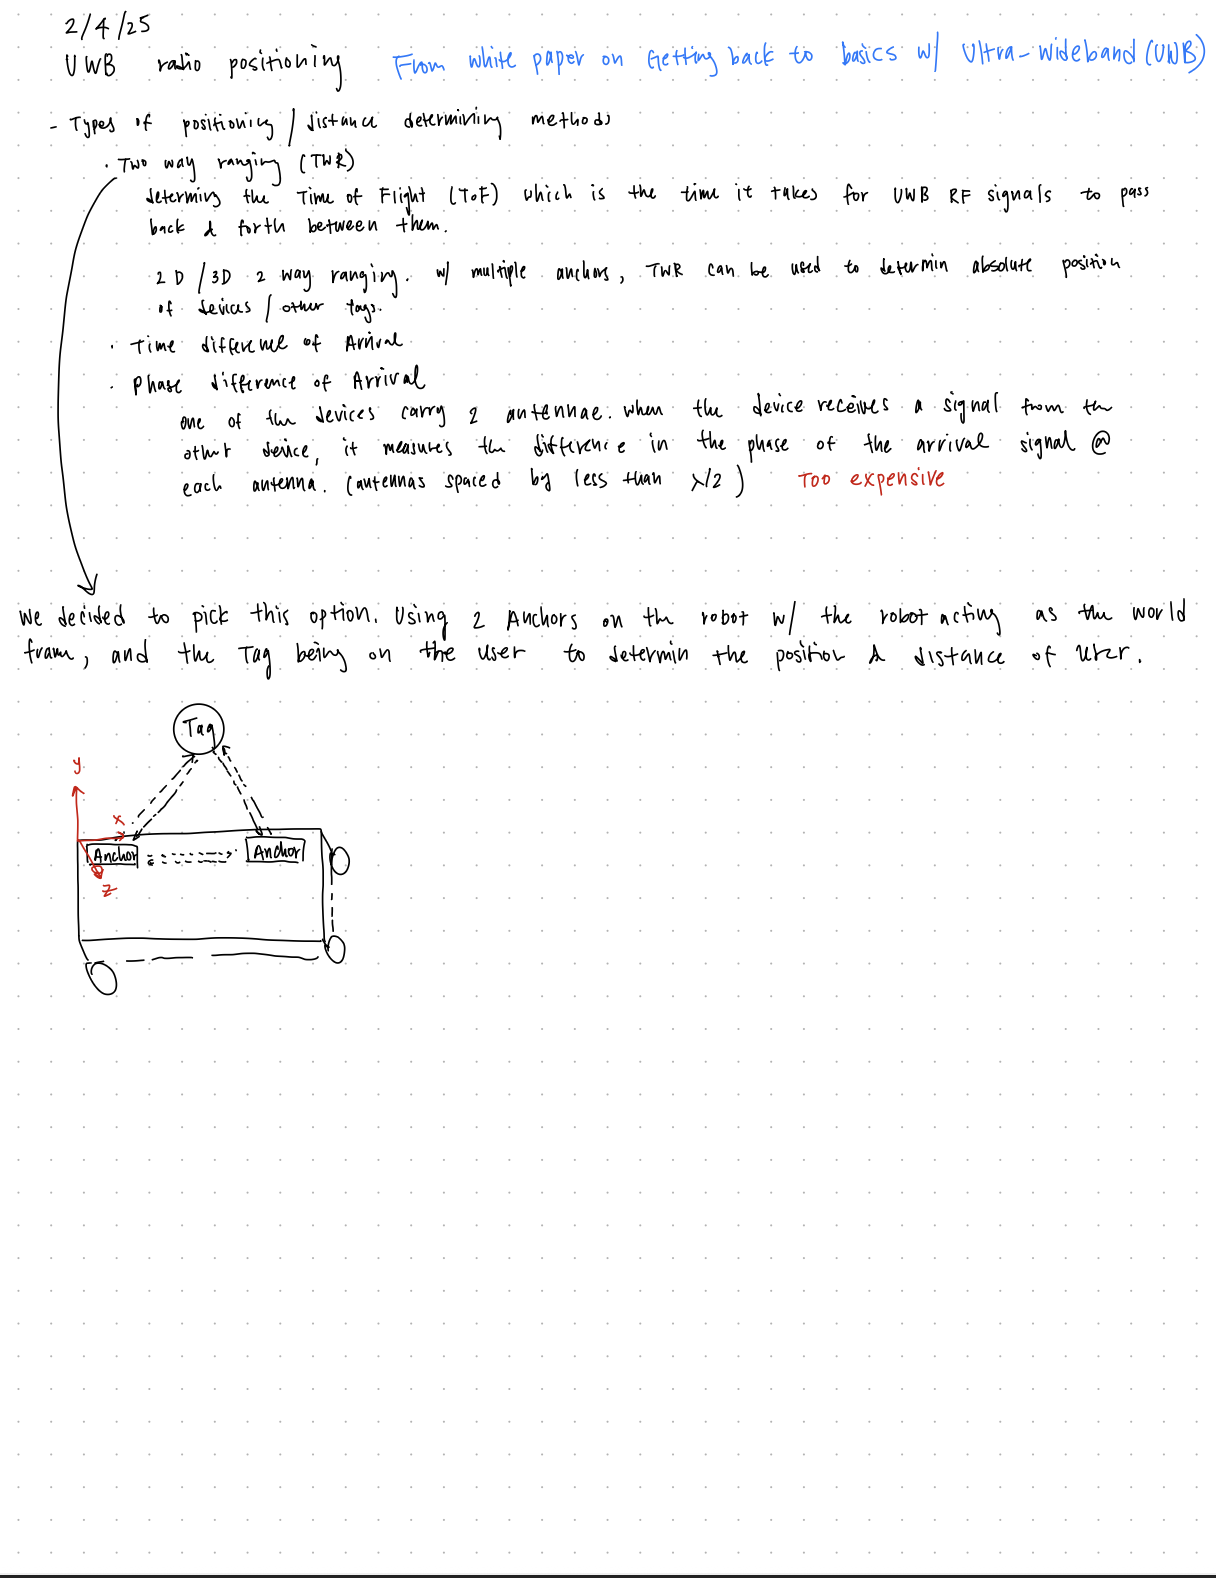 2/4/25
UWB radio positioning From white paper on Getting back to basics w/ Ultra-wideband (UWB)
- Types of positioning / distance determining methods
· Two way ranging (TWR)
determing the Time of Flight (ToF) which is the time it takes for UWB RF signals to pass
back & forth between them.
2D/3D 2 way ranging. w/ multiple anchors, TWR can be used to determin absolute position
of devices / other tags.
· Time difference of Arrival
· Phase difference of Arrival
one of the devices carry 2 antennae. when the device receives a signal from the
other device, it measures the difference in the phase of the arrival signal @
each antenna. (antennas spaced by less than λ/2) Too expensive
We decided to pick this option. Using 2 Anchors on the robot w/ the robot acting as the world
frame, and the Tag being on the user to determin the position & distance of user.
Tag
y
x
Anchor Anchor
z